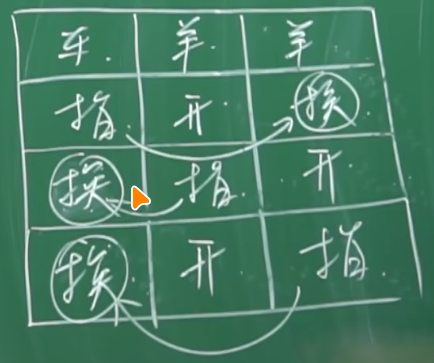 车. 羊. 羊
指. 开. 换
换 指 开
换. 开 指.